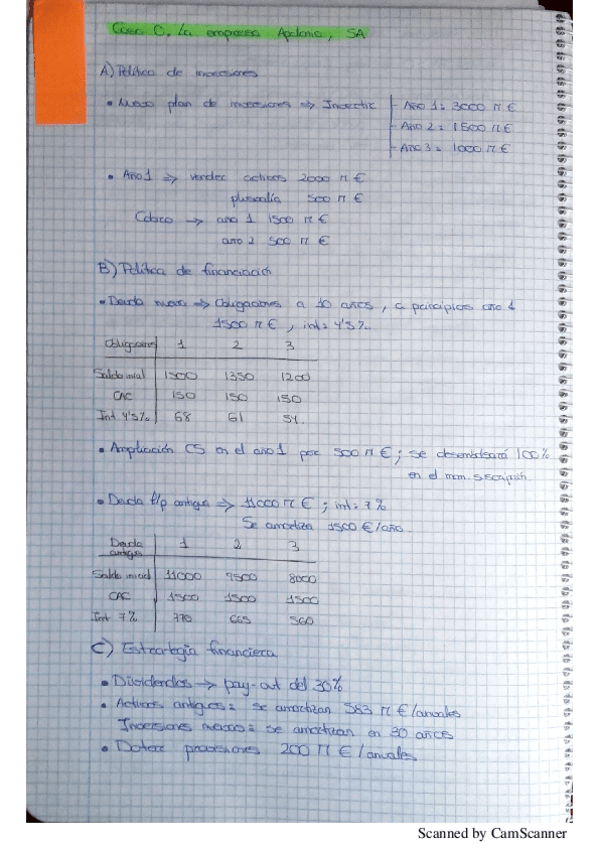 Caso C. La empresa Apolonio, SA
A) Política de inversiones
• Nuevo plan de inversiones => Invertir
Año 1: 3000 M €
Año 2: 1500 M €
Año 3: 1000 M €
• Año 1 => vender activos 2000 M €
plusvalía 500 M €
Cobro -> año 1 1500 M €
año 2 500 M €
B) Política de financiación
• Deuda nueva => Obligaciones a 10 años, a principios año 1
1500 M €, int: 4'5%
Obligaciones 1 2 3
Saldo inicial 1500 1350 1200
CAC 150 150 150
Int 4'5% 68 61 54
• Ampliación CS en el año 1 por 500 M €; se desembolsará 100%
en el mm. suscripción.
• Deuda l/p antigua => 11000 M €; int: 7%
Se amortiza 1500 €/año.
Deuda antigua 1 2 3
Saldo inicial 11000 9500 8000
CAC 1500 1500 1500
Int 7% 770 665 560
C) Estrategia financiera
• Dividendos -> pay-out del 30%
• Activos antiguos: se amortizan 583 M €/anuales
Inversiones nuevas: se amortizan en 30 años
• Dotará provisiones 200 M €/anuales
Scanned by CamScanner